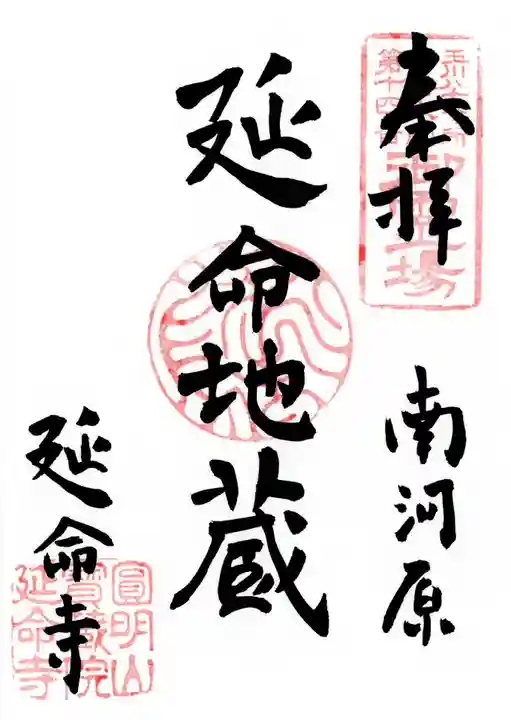 奉拝
第十四
御霊場
南河原
延命地蔵
延命寺
圓明山
寳蔵院
延命寺